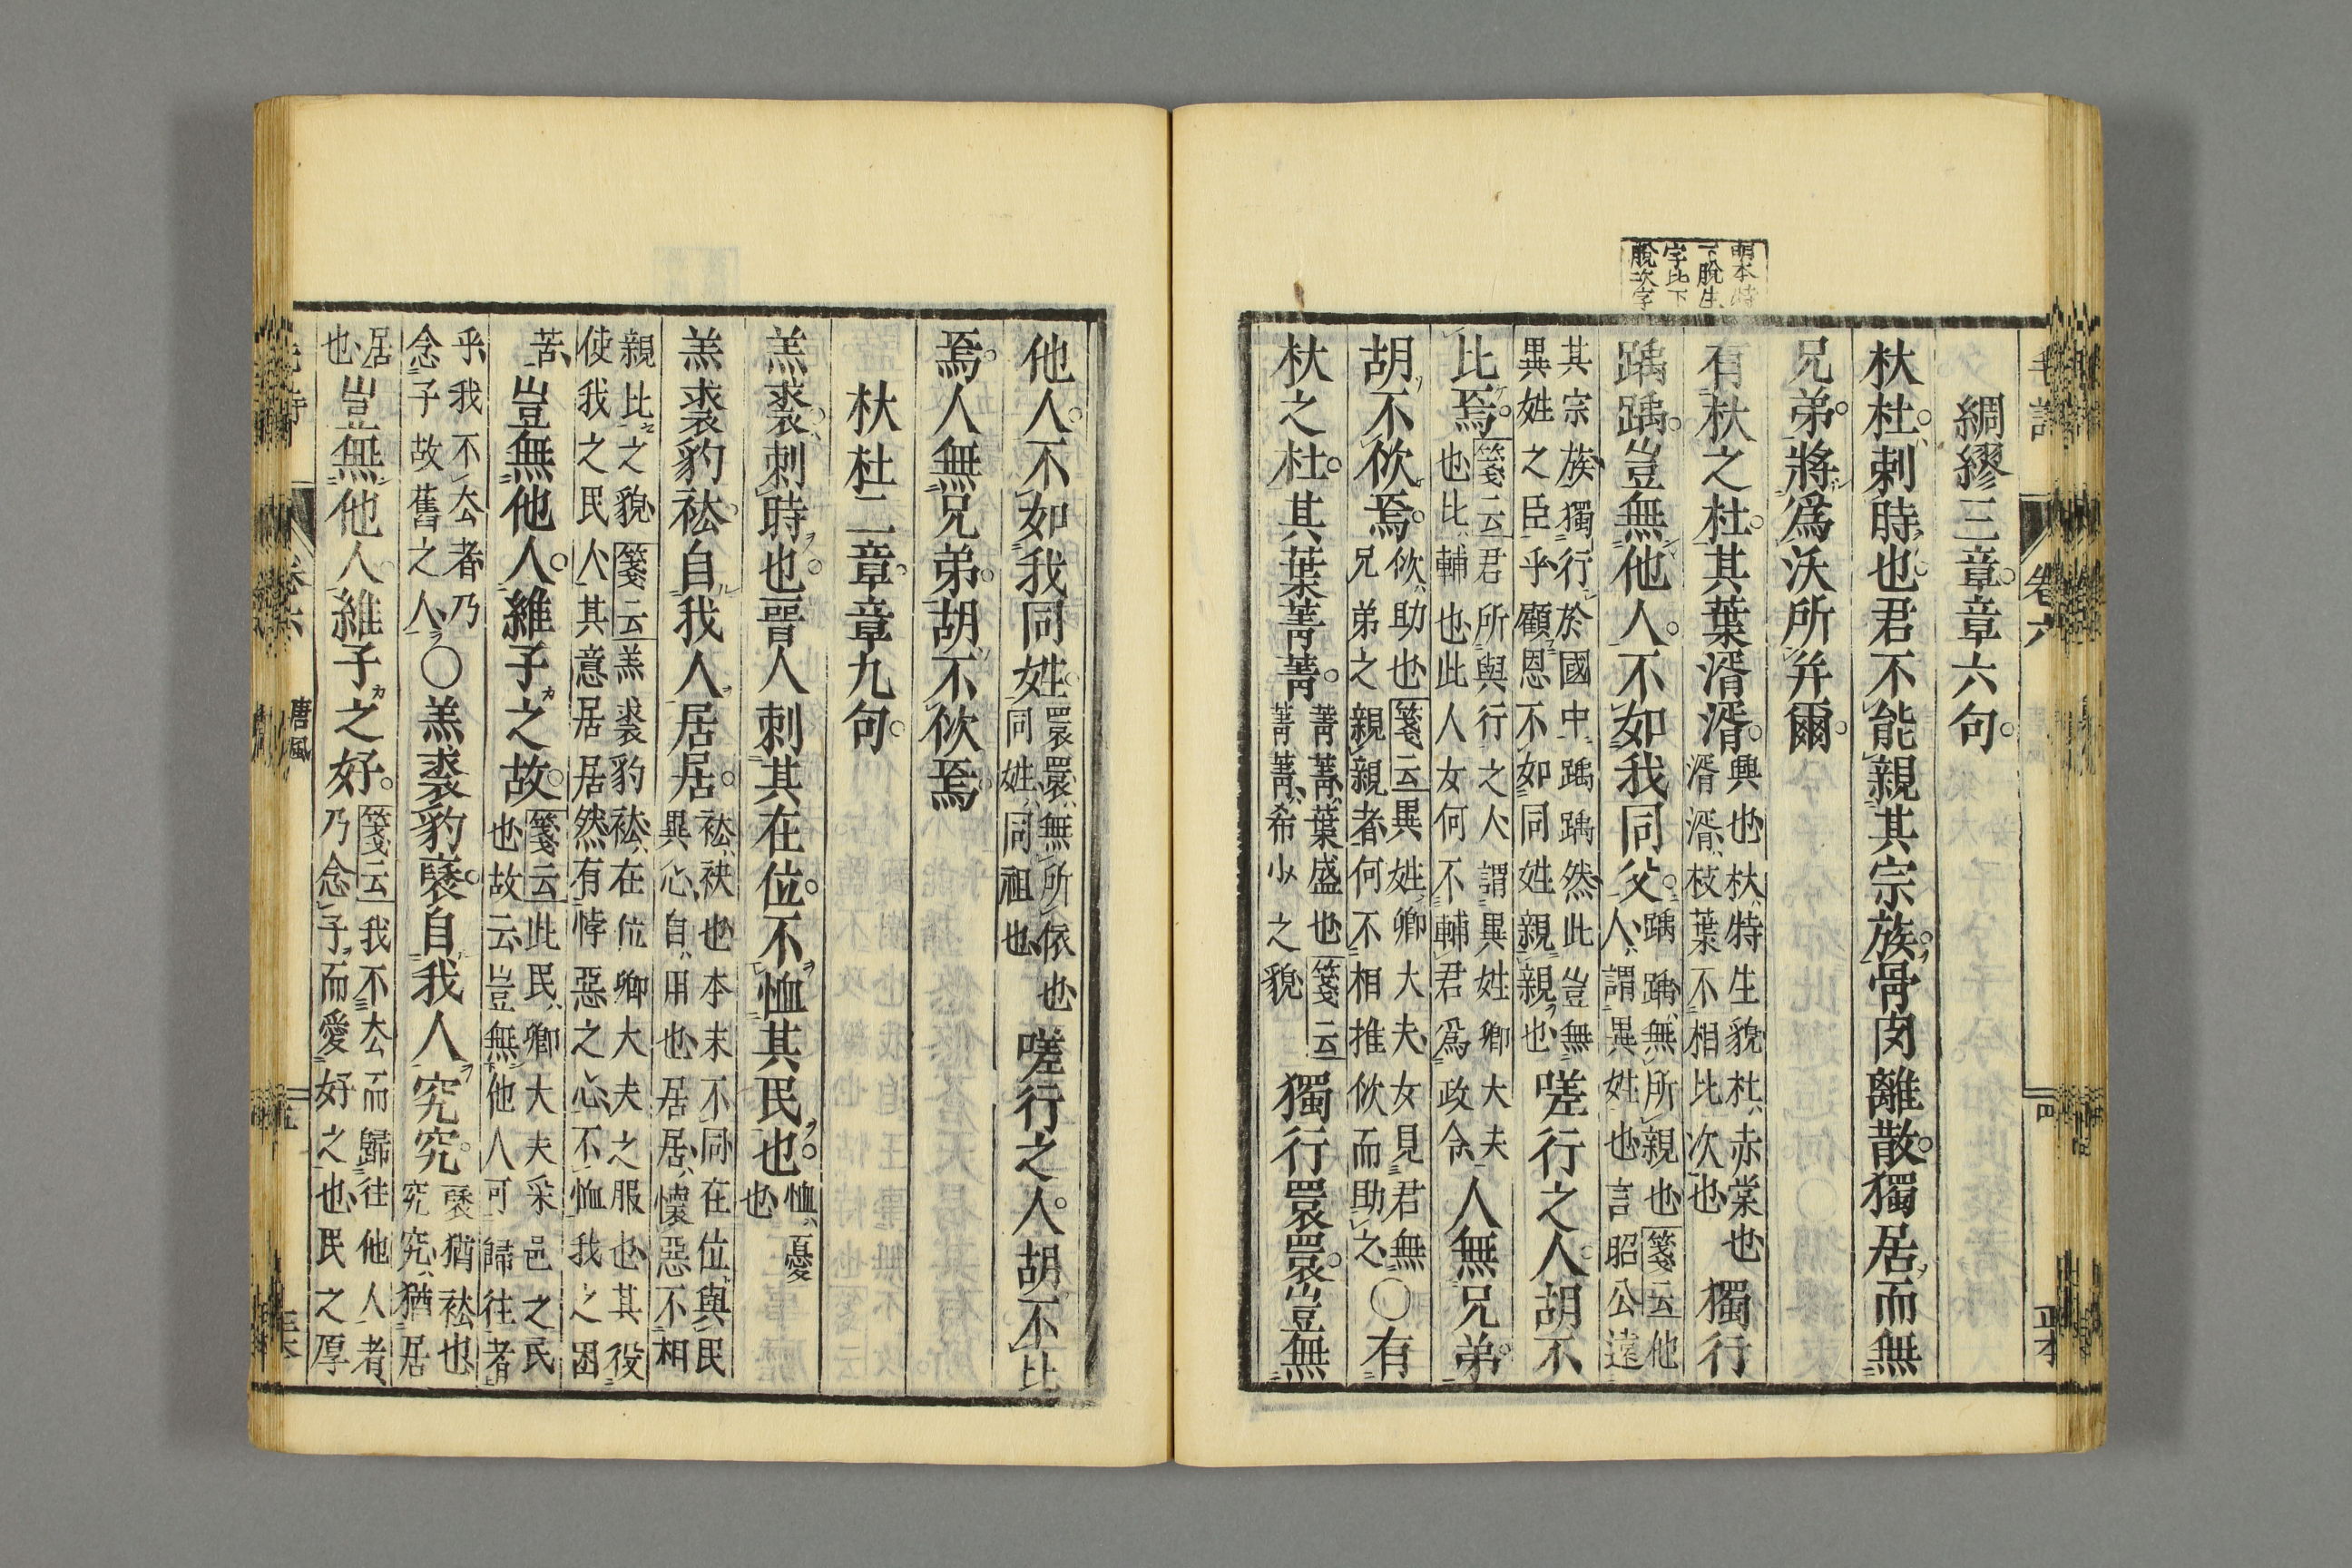 毛詩 卷六 四
明本特
下脫生
字比下
脫次字
綢繆三章章六句
杕杜刺時也君不能親其宗族骨肉離散獨居而無
兄弟將爲沃所幷爾
有杕之杜其葉湑湑
興也杕特生貌杜赤棠也
湑湑枝葉不相比次也
獨行
踽踽豈無他人不如我同父
踽踽無所親也箋云他
人謂異姓也言昭公遠
其宗族獨行於國中踽踽然此豈無
異姓之臣乎顧恩不如同姓親親也
嗟行之人胡不
比焉
箋云君所與行之人謂異姓卿大夫
也比輔也此人女何不輔君爲政令
人無兄弟
胡不佽焉
佽助也箋云異姓卿大夫女見君無
兄弟之親親者何不相推佽而助之
○有
杕之杜其葉菁菁
菁菁葉盛也箋云
菁菁希少之貌
獨行睘睘豈無
他人不如我同姓
睘睘無所依也
同姓同祖也
嗟行之人胡不比
焉人無兄弟胡不佽焉
杕杜二章章九句
羔裘刺時也晉人刺其在位不恤其民也
恤憂
也
羔裘豹袪自我人居居
袪袂也本末不同在位與民
異心自用也居居懷惡不相
親比之貌箋云羔裘豹袪在位卿大夫之服也其役
使我之民人其意居居然有悖惡之心不恤我之困
苦
豈無他人維子之故
箋云此民卿大夫采邑之民
也故云豈無他人可歸往者
乎我不去者乃
念子故舊之人
○羔裘豹褎自我人究究
褎猶袪也
究究猶居
居
也
豈無他人維子之好
箋云我不去而歸往他人者
乃念子而愛好之也民之厚
卷六 唐風 五